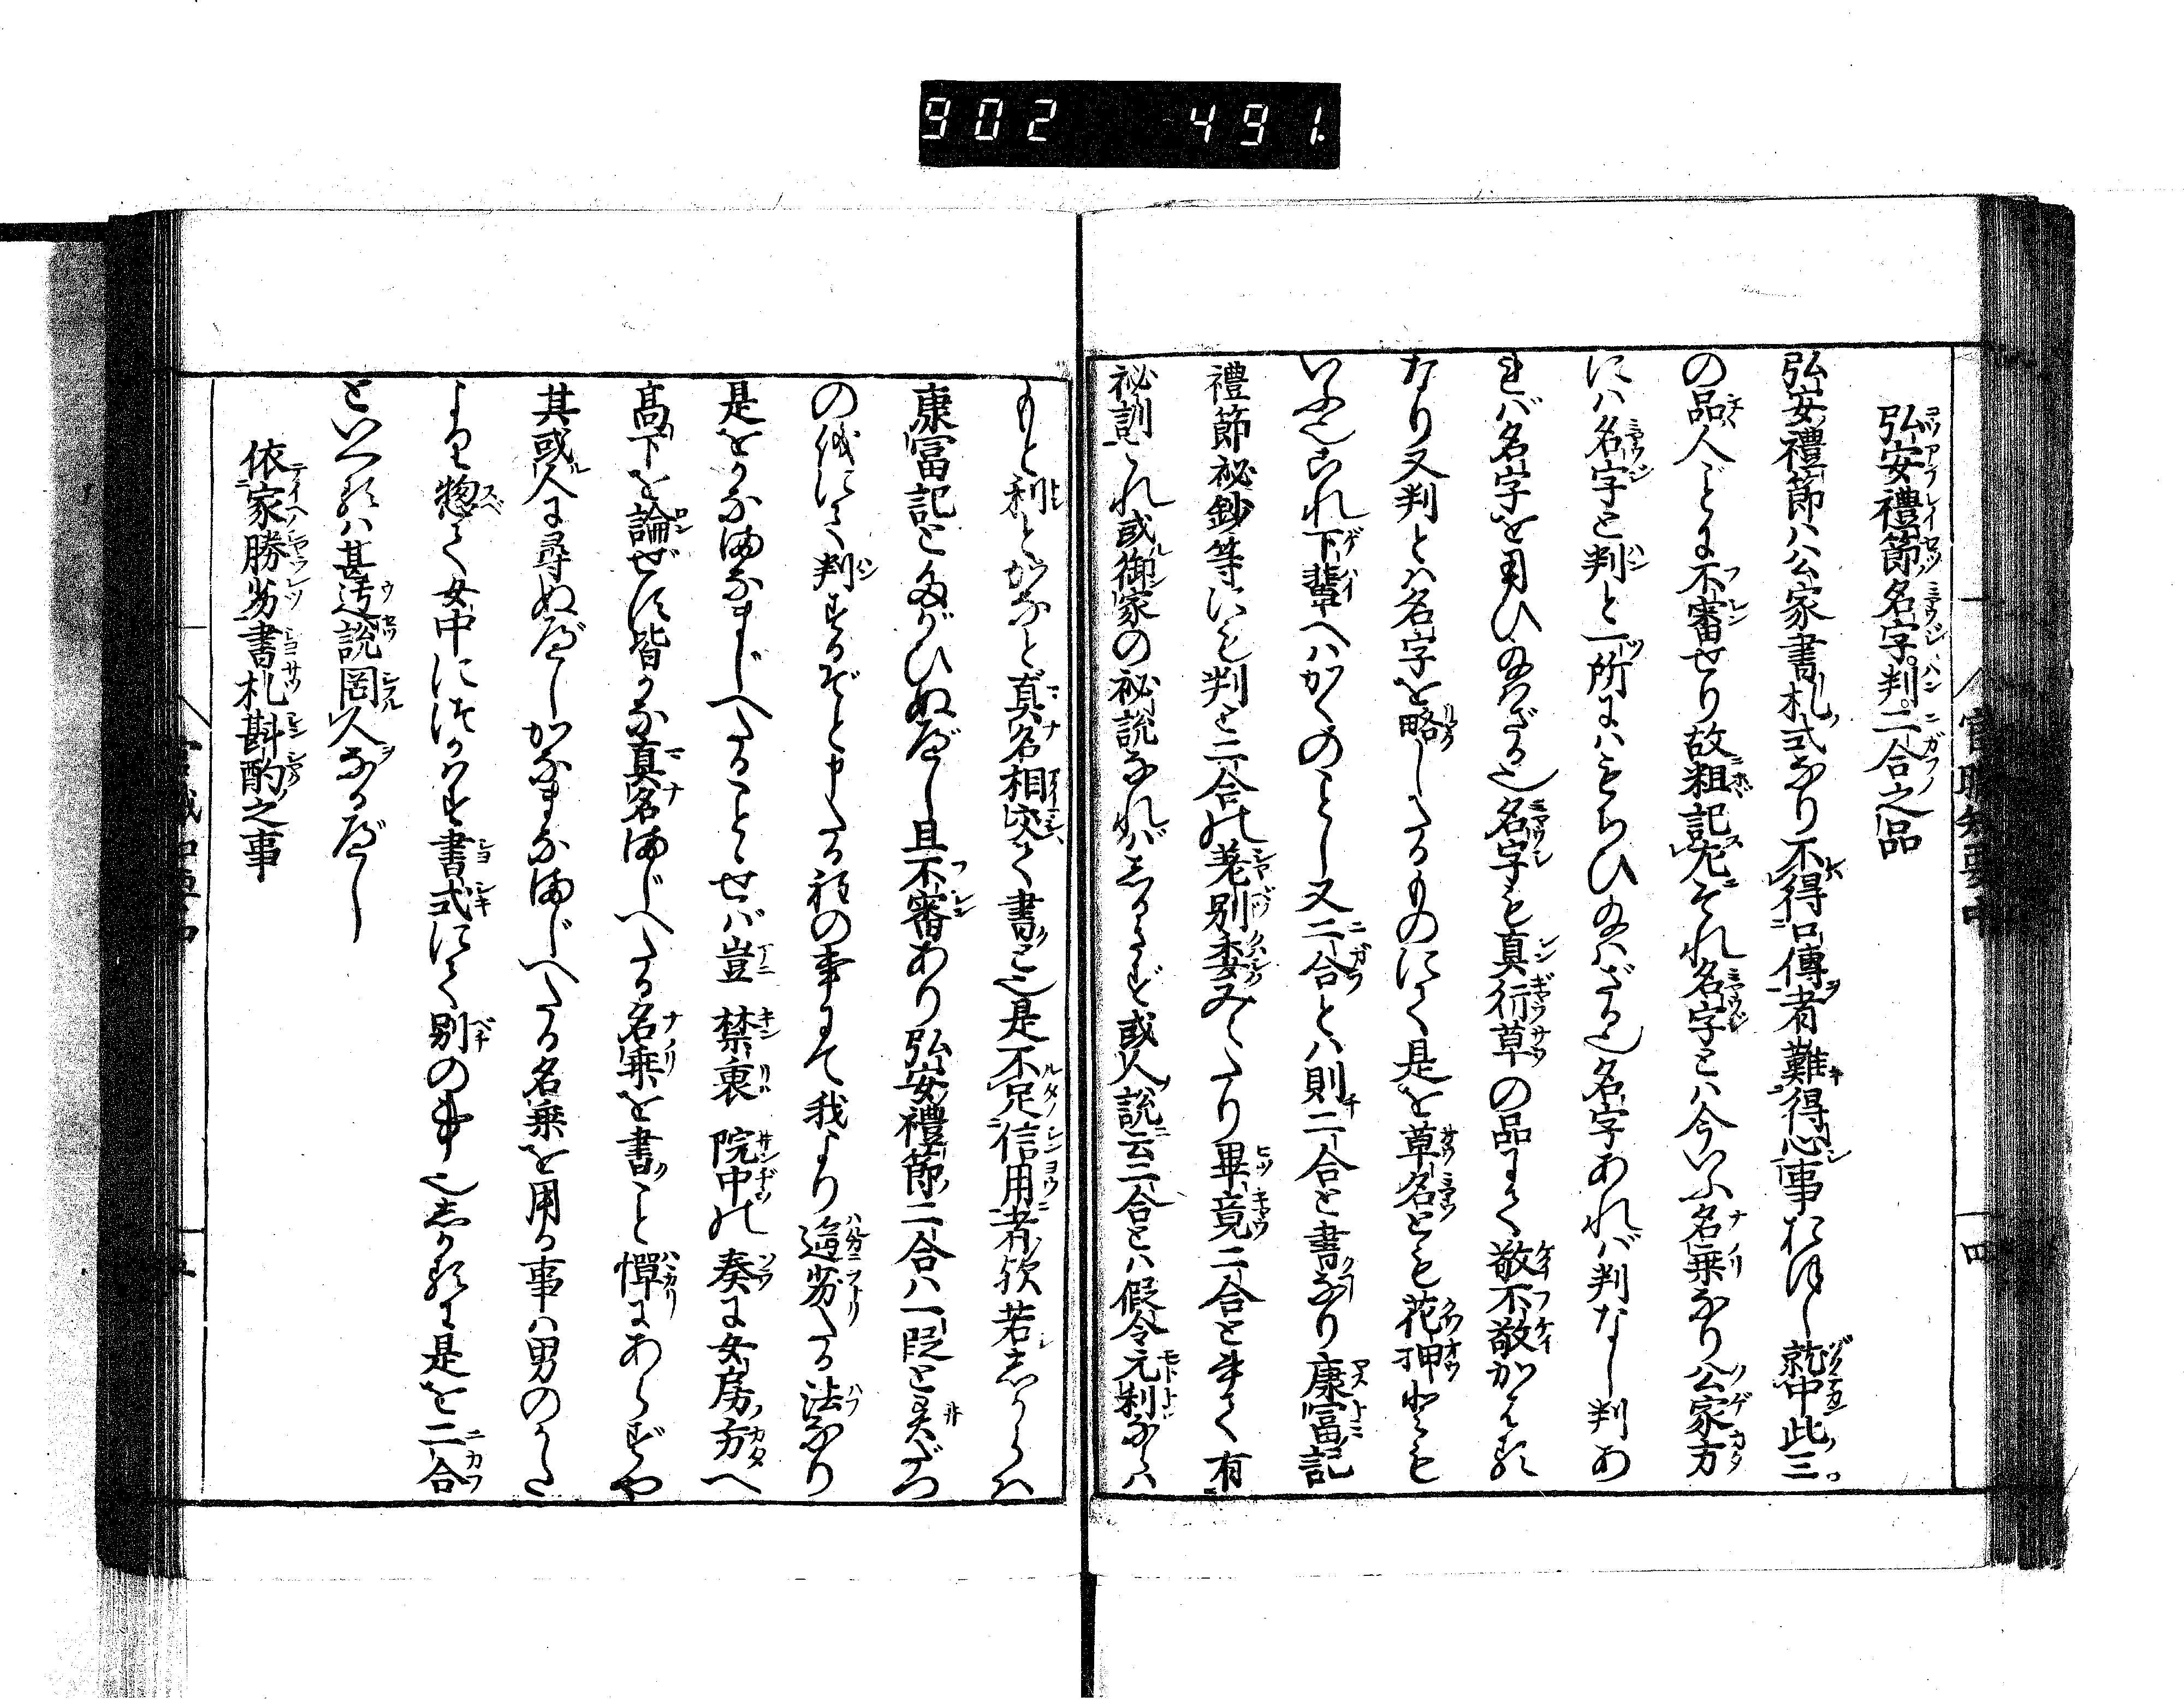 902 491.
官職知要中
四
弘安禮節名字判二合之品
弘安禮節ハ公家書札式なり不得口傳者難得心事おほし就中此三
の品人ごとに不審せり故粗記尤それ名字とハ今いふ名乗なり公家方
にハ名字と判と一所にハもちひ給ハざる也名字あれバ判なし判あ
れバ名字を用ひ給ハざる也名字も真行草の品にて敬不敬かハる
なり又判とハ名字を略したるものにて是を草名とも花押とも
いふ也され下輩へハかくのごとし又二合とハ則二合と書なり康富記
禮節秘鈔等にも判と二合の差別委みへたり畢竟二合と書て有
秘訓これ或御家の秘説なれバしるさず或人説云二合とハ假令元利ならハ
もと利とかなと真名相交て書こと也是不足信用者歟若しからハ
康富記とたがひぬべし且不審あり弘安禮節二合ハ一段と
の儀にて判するぞと申たる程の事にて我より遥劣たる法なり
是をかなまなまじへたることゝせバ豈禁裏院中の奏に女房方へ
高下を論ぜず皆かな真名まじへたる名乗を書こと憚にあらずや
其或人に尋ぬべしかなまなまじへたる名乗を用る事ハ男のかた
より惣て女中につかハす書式にて別の事也しかるに是を二合
といへるハ甚迂説罔人なるべし
依家勝劣書札斟酌之事